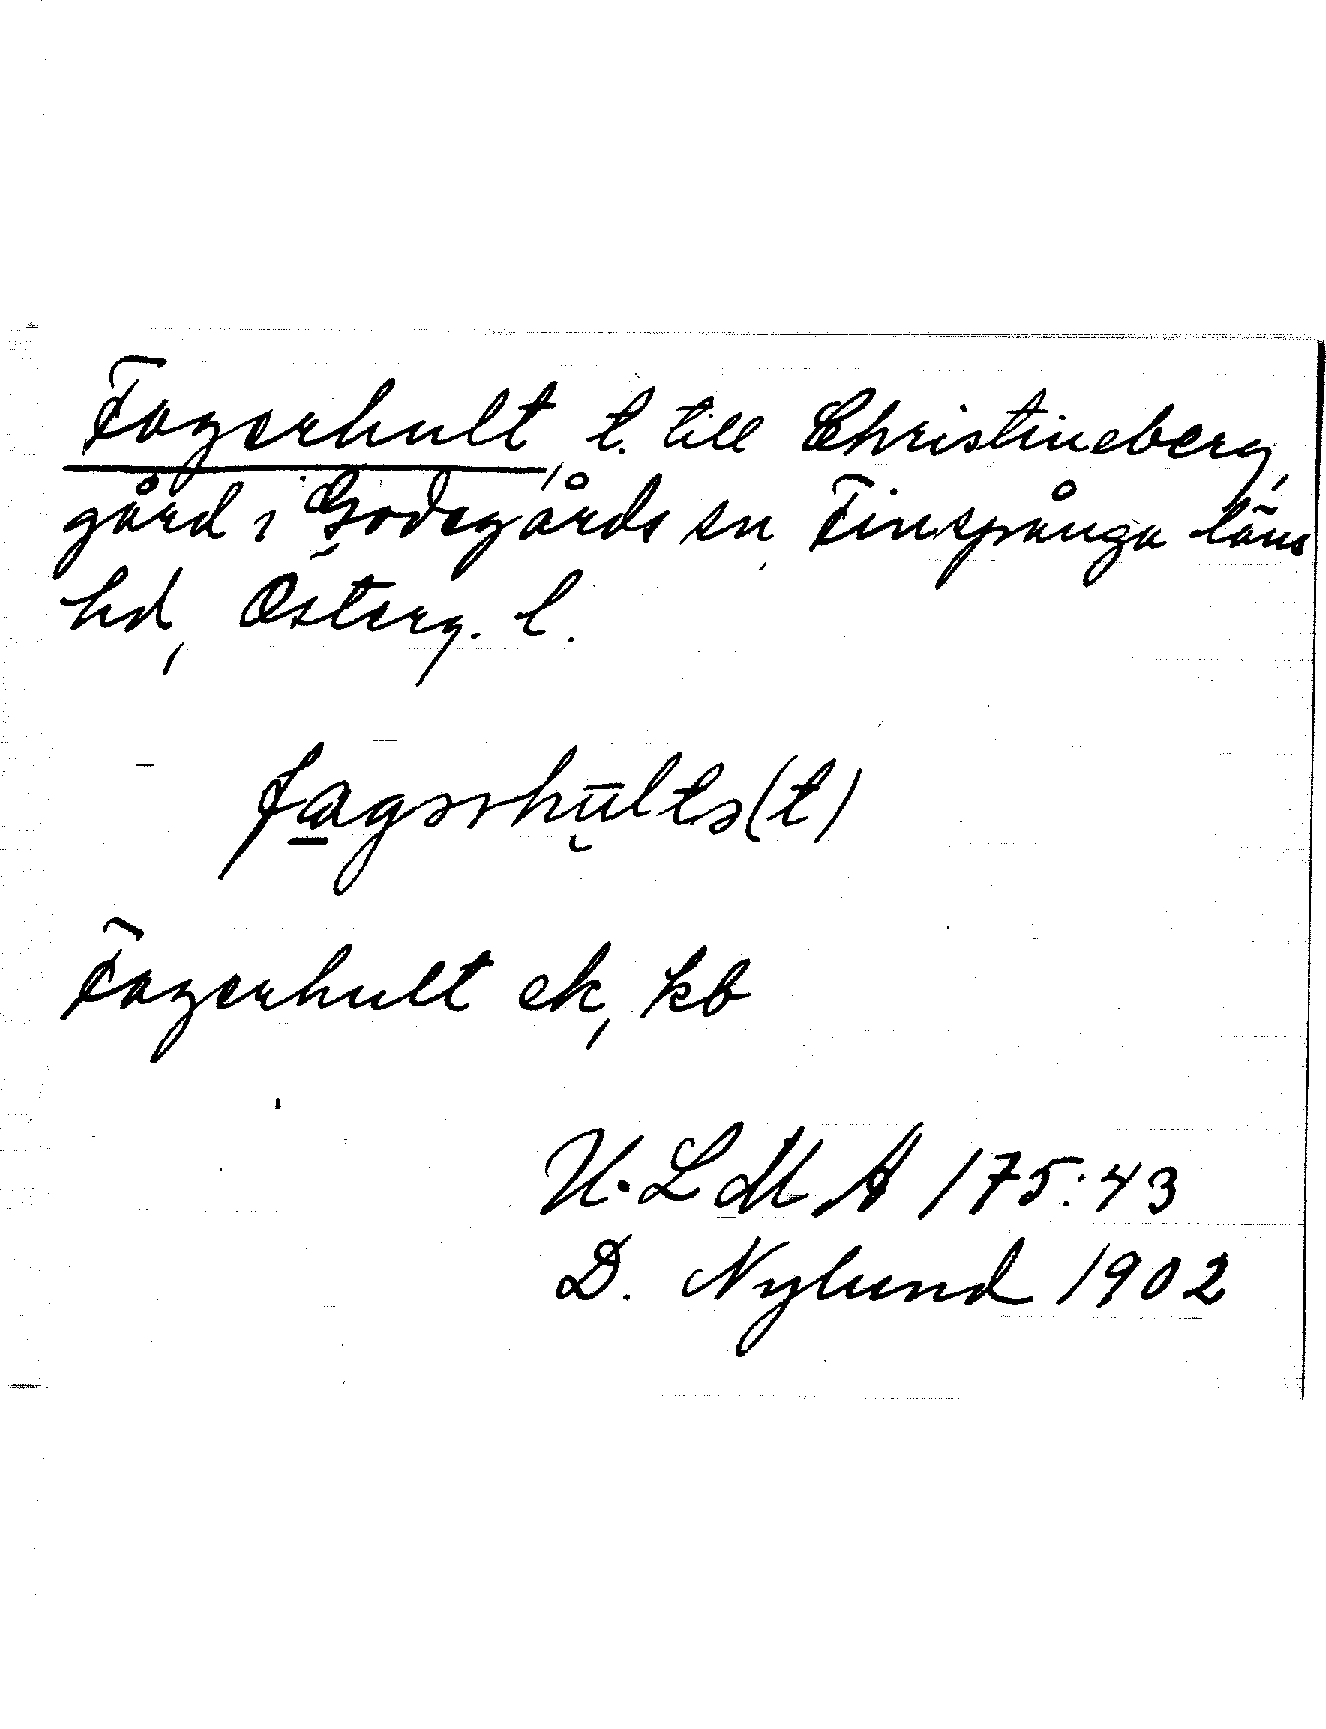 Fagerhult, t. till Christineberg,
gård i Godegårds sn Finspånga läns
hd, Österg. l.
Fagerhult ek, kb
U.L.M.A 175:43
D. Nylund 1902